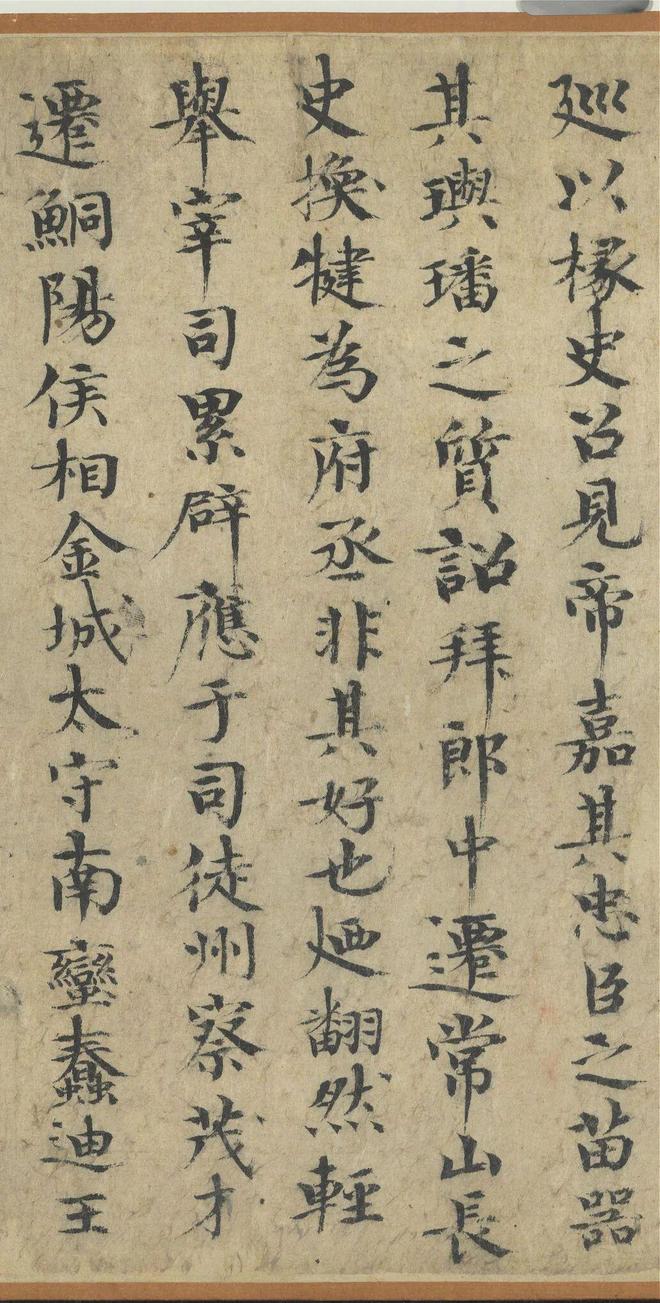 廵以椽史召見帝嘉其忠臣之苗器
其璵璠之質詔拜郎中遷常山長
史換犍為府丞非其好也廼翻然輕
舉宰司累辟應于司徒州察茂才
遷鮦陽侯相金城太守南蠻蠢迪王